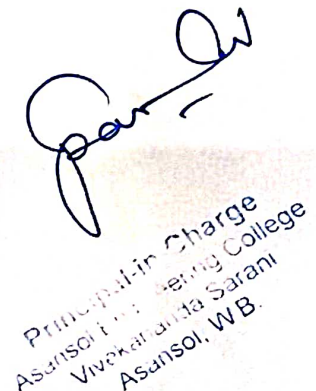 Principal-in Charge
Asansol Engineering College
Vivekananda Sarani
Asansol, W.B.